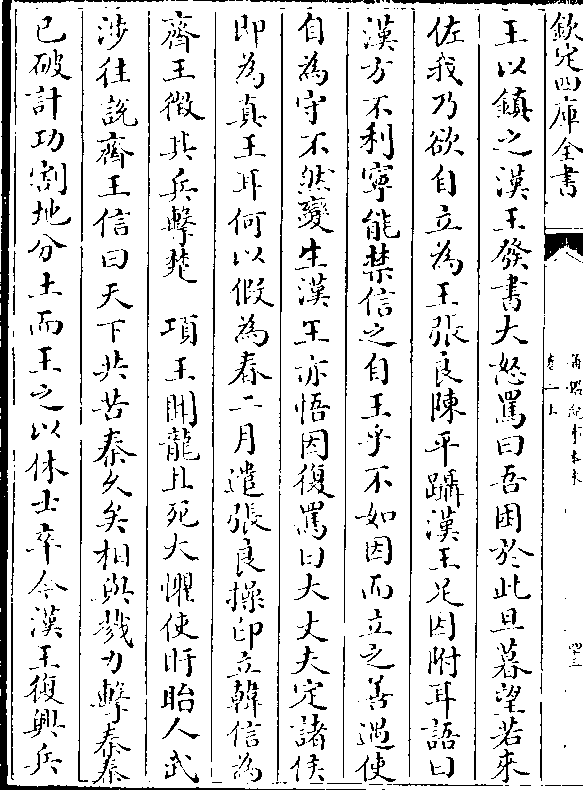 欽定四庫全書
王以鎮之漢王發書大怒罵曰吾困於此旦暮望若來
佐我乃欲自立為王張良陳平躡漢王足因附耳語曰
漢方不利寧能禁信之自王乎不如因而立之善遇使
自為守不然變生漢王亦悟因復罵曰大丈夫定諸侯
即為真王耳何以假為春二月遣張良操印立韓信為
齊王徵其兵擊楚 項王聞龍且死大懼使盱眙人武
涉往説齊王信曰天下共苦秦久矣相與戮力擊秦秦
已破計功割地分土而王之以休士卒今漢王復興兵